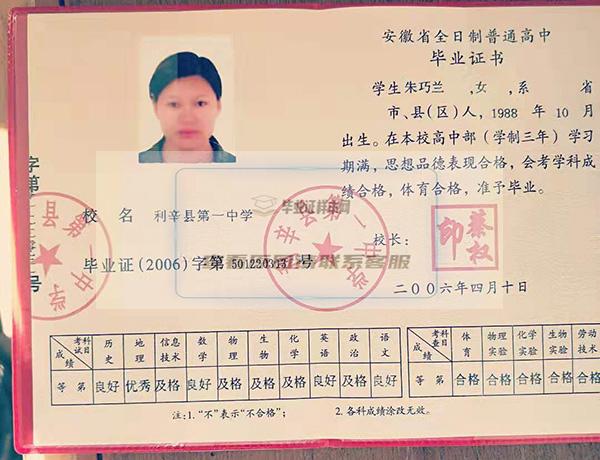 安徽省全日制普通高中
毕业证书
学生朱巧兰 ,女 ,系 省
市、县(区)人, 1988 年 10 月
出生。在本校高中部(学制三年)学习
期满,思想品德表现合格,会考学科成
绩合格,体育合格,准予毕业。
校 名 利辛县第一中学
校长:
蔡权印
毕业证(2006)字第 号
二〇〇六年四月十日
毕业证样本网
联系客服
县第一中学
利辛县第一中学
字第
号
考试科目 历史 地理 信息技术 数学 物理 生物 化学 英语 政治 语文
成绩
等 第 良好 优秀 及格 良好 及格 及格 及格 良好 及格 良好
考查科目 体育 物理实验 化学实验 生物实验 劳动技术
成绩
等 第 合格 合格 合格 合格 合格
注:1.“不”表示“不合格”; 2.各科成绩涂改无效。